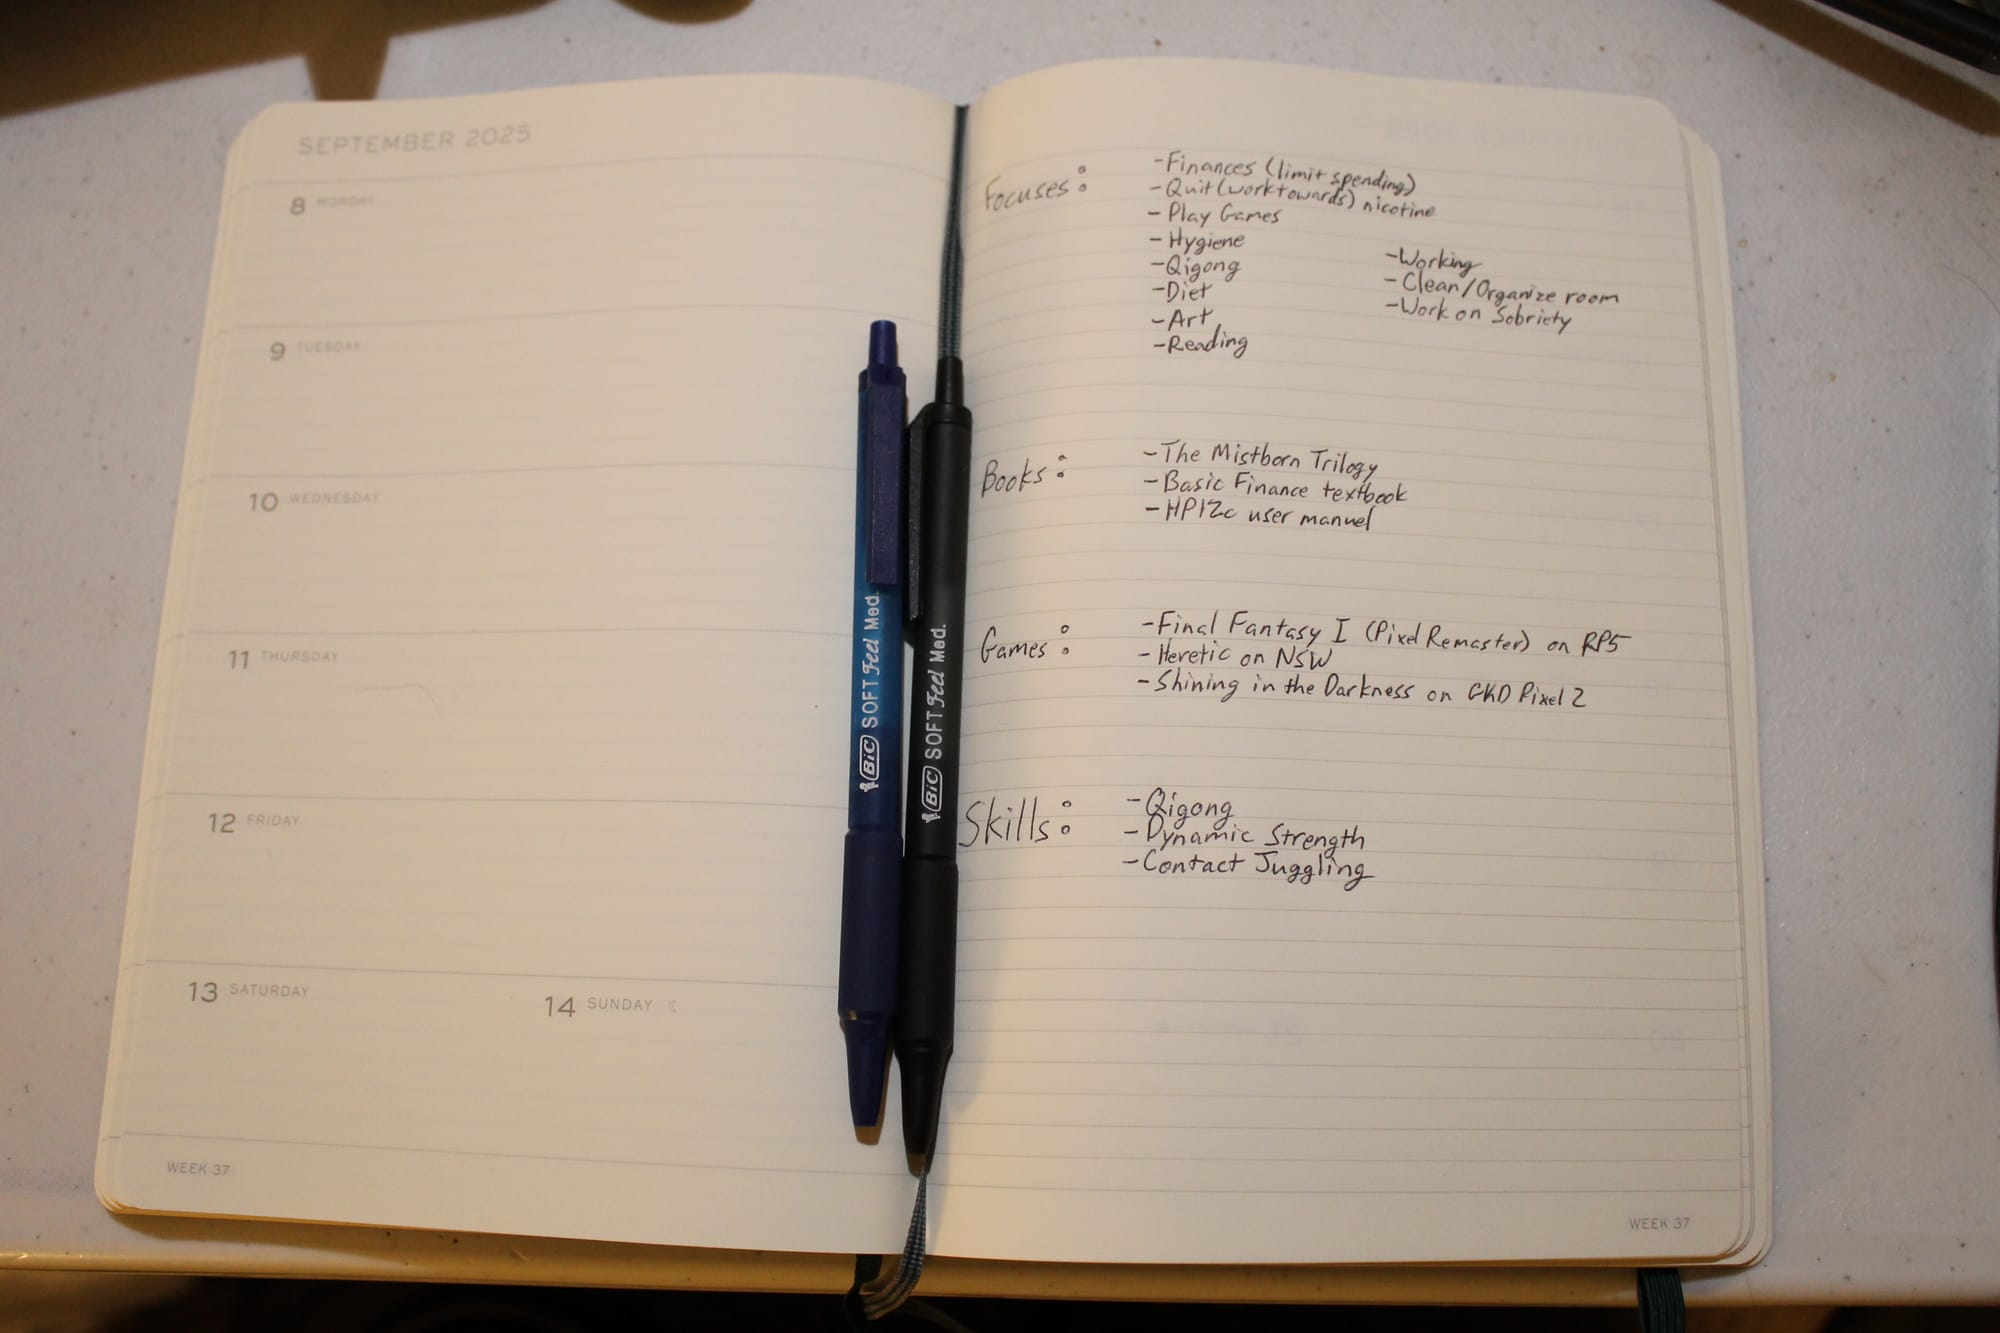 SEPTEMBER 2025
8 MONDAY
9 TUESDAY
10 WEDNESDAY
11 THURSDAY
12 FRIDAY
13 SATURDAY
14 SUNDAY
WEEK 37
BiC SOFT Feel Med.
BiC SOFT Feel Med.
Focuses:
-Finances (limit spending)
-Quit (work towards) nicotine
-Play Games
-Hygiene
-Qigong
-Diet
-Art
-Reading
-Working
-Clean/Organize room
-Work on Sobriety
Books:
-The Mistborn Trilogy
-Basic Finance textbook
-HP12c user manuel
Games:
-Final Fantasy I (Pixel Remaster) on RP5
-Heretic on NSW
-Shining in the Darkness on GKD Pixel 2
Skills:
-Qigong
-Dynamic Strength
-Contact Juggling
WEEK 37